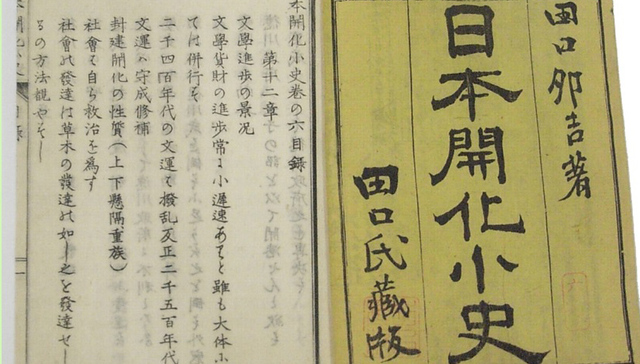 田口卯吉著
日本開化小史
田口氏藏版
本開化小史巻の六目録
第十二章
文學進歩の景况
文學貨財の進歩常に小遅速あると雖も大体小
ては併行そ
二千四百年代の文運て撥乱反正二千五百年代
文運ハ守成修補
封建開化の性質(上下懸隔重族)
社會て自ら救治を爲す
社會の發達は草木の發達の如し之を發達せし
るの方法